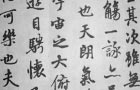 次雖
觴一詠
也天朗氣
宇宙之大俯
遊目騁懷
可樂也夫